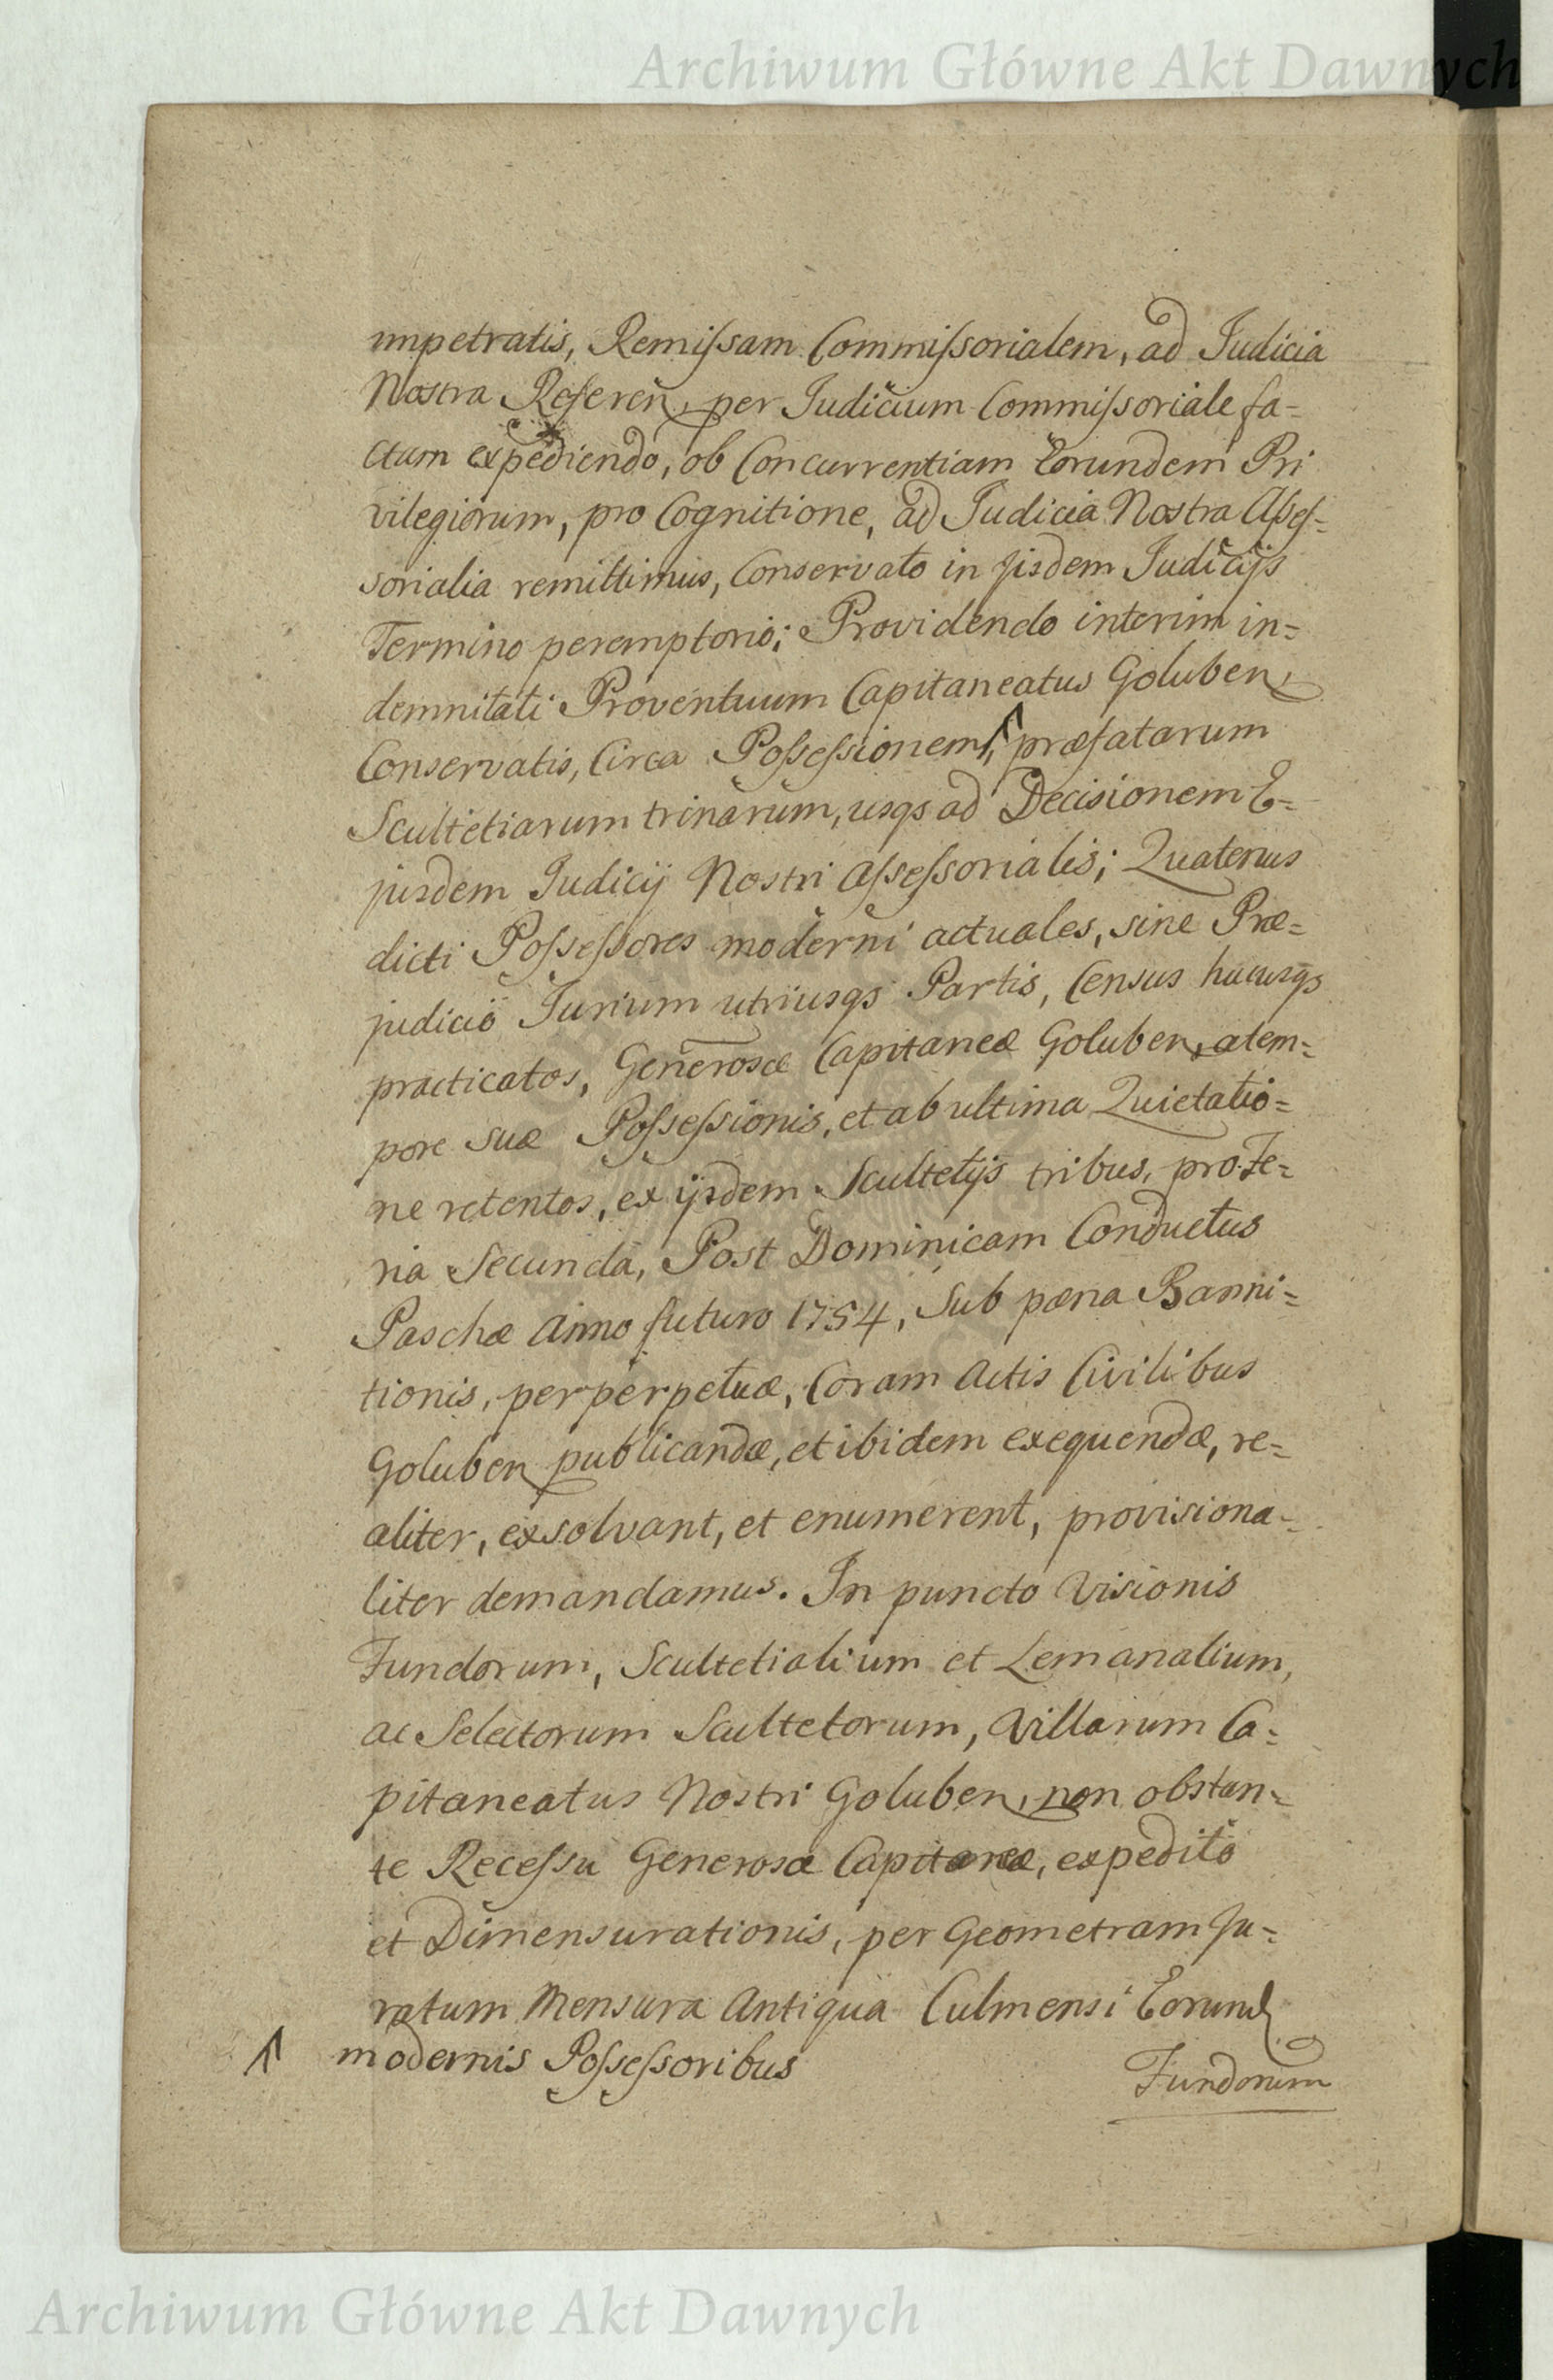 Archiwum Główne Akt Dawnych
impetratis, Remissam Commissorialem, ad Judicia
Nostra Referen, per Judicium Commissoriale fa=
ctum expediendo, ob Concurrentiam Eorundem Pri
vilegiorum, pro Cognitione, ad Judicia Nostra Asses=
sorialia remittimus, Conservato in iisdem Judicijs
Termino peremptorio; Providendo interim in=
demnitati Proventuum Capitaneatus Goluben,
Conservatis, Circa Possessionem, præfatarum
Scultetiarum trinarum, usqs ad Decisionem E=
jusdem Judicij Nostri Assessorialis; Quatenus
dicti Possessores moderni actuales, sine Præ=
judicio Jurium utriusqs Partis, Census hucusqs
practicatos, Generosæ Capitaneæ Goluben, atem=
pore suæ Possessionis, et ab ultima Quietatio=
ne retentos, ex ijsdem Scultetijs tribus, pro Fe=
ria Secunda, Post Dominicam Conductus
Paschæ Anno futuro 1754, Sub pœna Banni=
tionis, perperpetuæ, Coram Actis Civilibus
Goluben publicandæ, et ibidem exequendæ, re=
aliter, exsolvant, et enumerent, provisiona=
liter demandamus. In puncto Visionis
Fundorum, Scultetialium et Lemanalium,
ac Selectorum Scultetorum, Villarum Ca=
pitaneatus Nostri Goluben, non obstan=
te Recessu Generosæ Capitaneæ, expedito
et Dimensurationis, per Geometram Ju=
ratum Mensura Antiqua Culmensi Eorund
modernis Possessoribus
Fundorum
Archiwum Główne Akt Dawnych